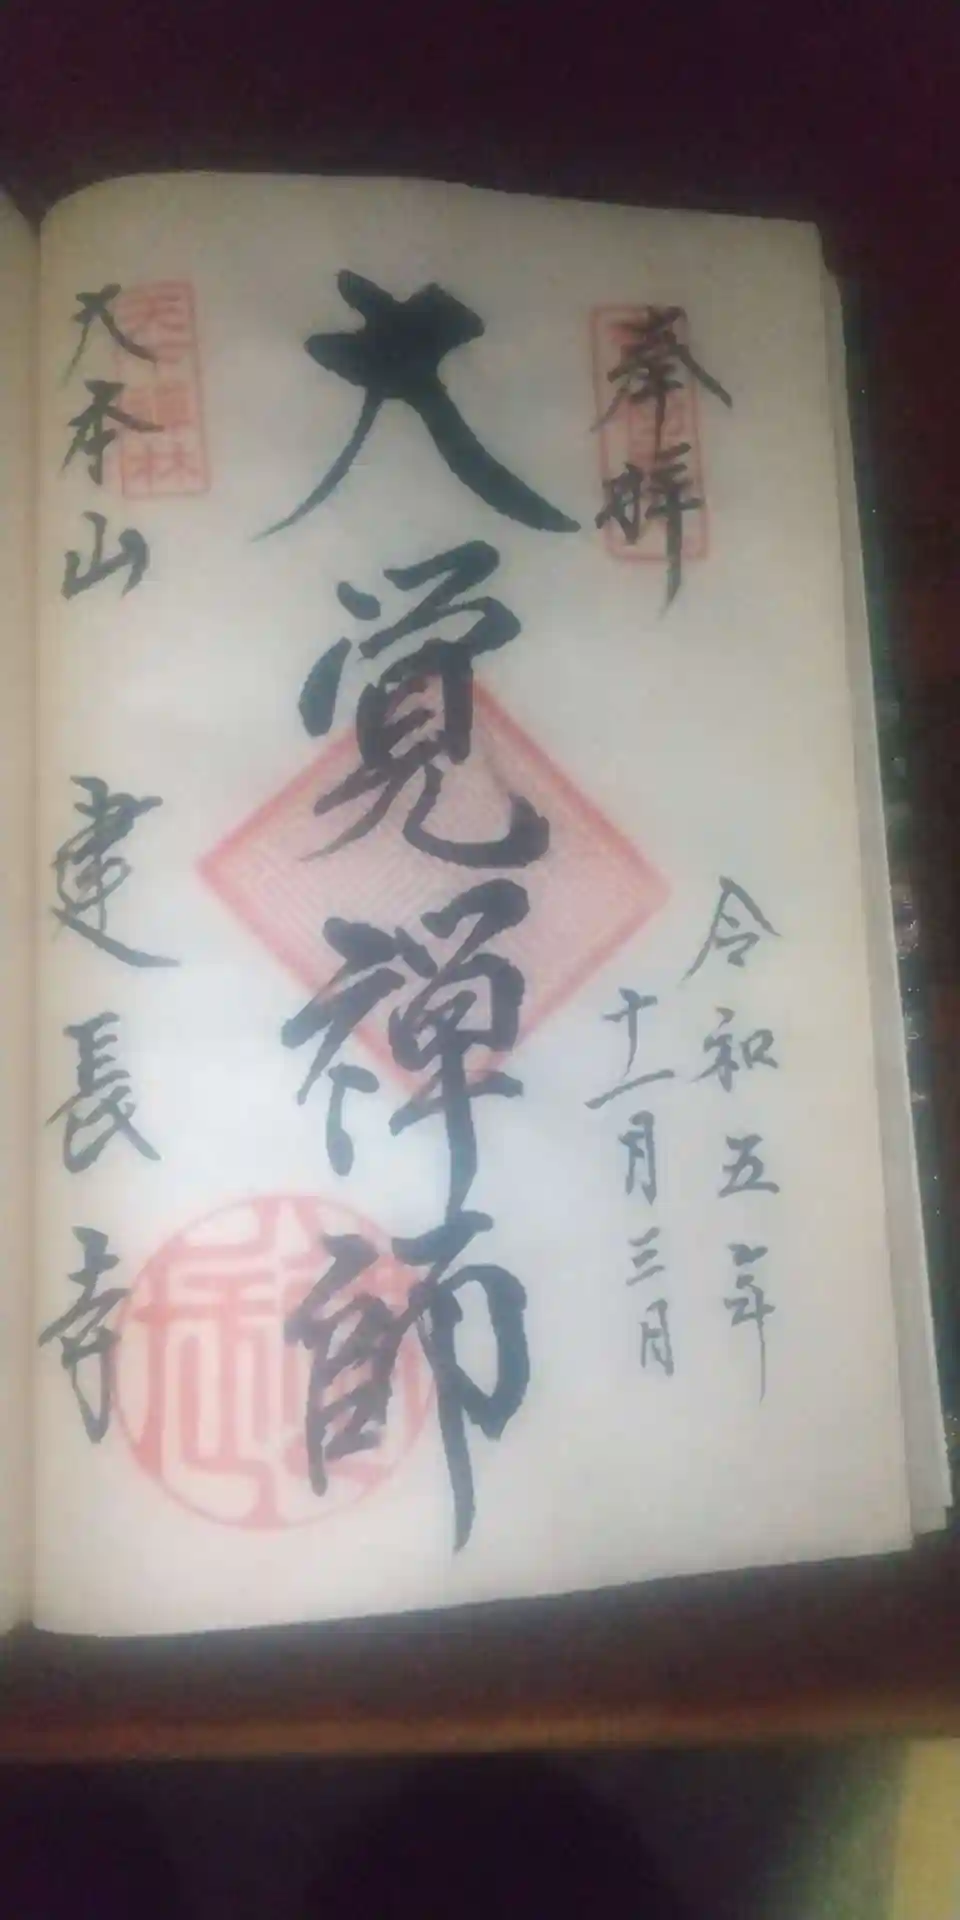 奉拝
令和五年
十一月三日
大覚禅師
天下禅林
大本山 建長寺